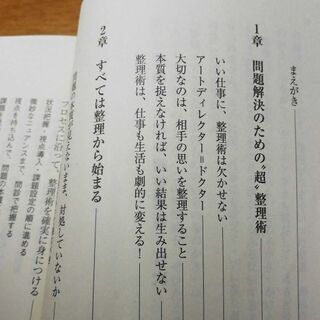 まえがき
1章 問題解決のための〝超〟整理術
いい仕事に、整理術は欠かせない
アートディレクター＝ドクター
大切なのは、相手の思いを整理すること
本質を捉えなければ、いい結果は生み出せない
整理術は、仕事も生活も劇的に変える！
2章 すべては整理から始まる
対処していないか
プロセスに沿って、整理術を確実に身につける
状況把握 視点導入 課題設定の順に進める
微妙なニュアンスまで、問診で把握する
視点を持ち込んで、問題の本質